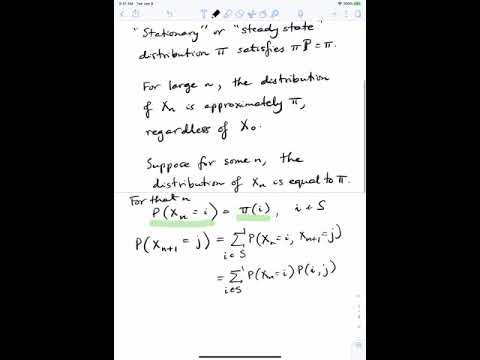 9:41 AM Tue Jan 9
"Stationary" or "steady state"
distribution π satisfies πP = π.
For large n, the distribution
of Xn is approximately π,
regardless of X0.
Suppose for some n, the
distribution of Xn is equal to π.
For that n
P(Xn = i) = π(i), i ∈ S
P(Xn+1 = j) = ∑ P(Xn = i, Xn+1 = j)
i ∈ S
= ∑ P(Xn = i) P(i, j)
i ∈ S